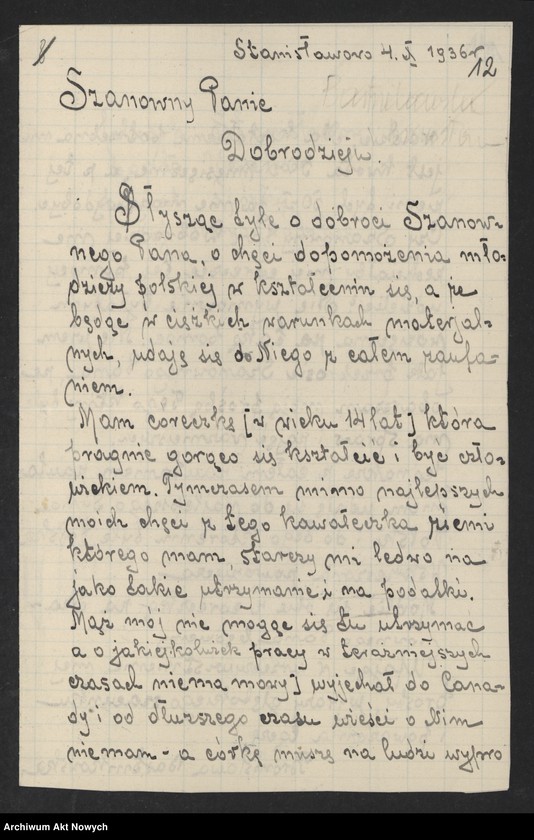 Stanisławowo 4. X 1936r
12
Szanowny Panie
Dobrodzieju.
Słysząc tyle o dobroci Szanow-
nego Pana, o chęci dopomożenia mło-
dzieży polskiej w kształceniu się, a że
będąc w ciężkich warunkach materjal-
nych, udaję się do Niego z całem zaufa-
niem.
Mam coreczkę [w wieku 14 lat] która
pragnie gorąco się kształcic i byc czło-
wiekiem. Tymczasem mimo najlepszych
moich chęci z tego kawałeczka ziemi
którego mam, starczy mi ledwo na
jako takie utrzymanie i na podatki.
Mąż mój nie mogąc się tu utrzymac
a o jakiejkolwiek pracy w teraźniejszych
czasach niema mowy] wyjechał do Cana-
dy i od dłuższego czasu wieści o Nim
niemam - a córkę muszę na ludzi wypro
Archiwum Akt Nowych